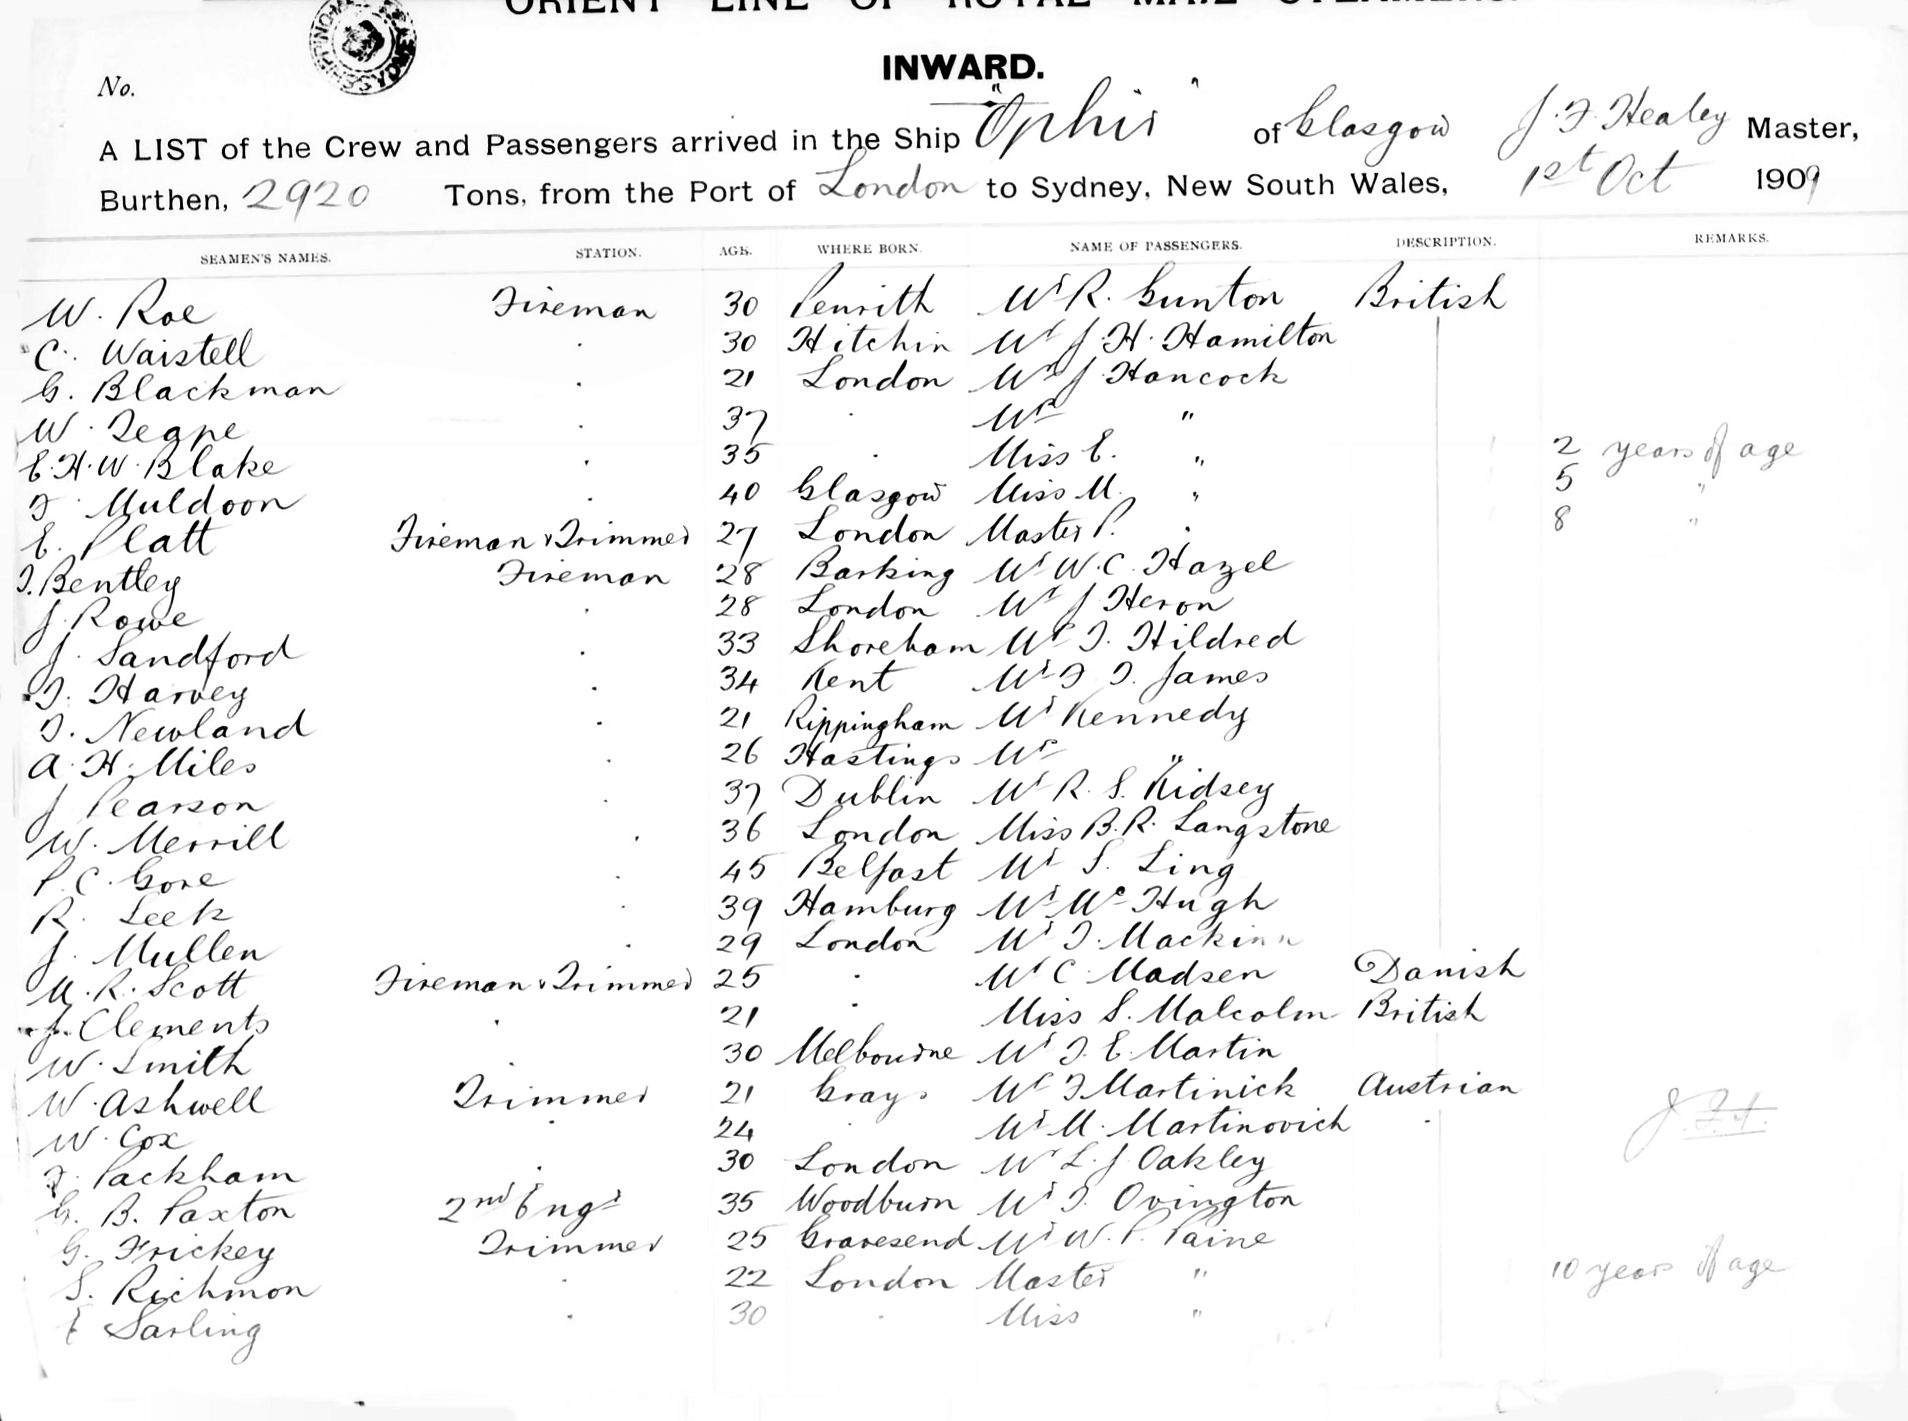 ORIENT LINE OF ROYAL MAIL STEAMERS.
INWARD.
No.
A LIST of the Crew and Passengers arrived in the Ship "Ophir" of Glasgow J. F. Healey Master,
Burthen, 2920 Tons, from the Port of London to Sydney, New South Wales, 1st Oct 1909
SEAMEN'S NAMES. STATION. AGE. WHERE BORN. NAME OF PASSENGERS. DESCRIPTION. REMARKS.
W. Roe Fireman 30 Penrith Mr R. Gunton British
C. Waistell . 30 Hitchin Mr J. H. Hamilton
G. Blackman . 21 London Mr J Hancock
W. Teape . 37 . Mrs "
E. H. W. Blake . 35 . Miss E. " 2 years of age
F. Muldoon . 40 Glasgow Miss M. " 5 "
E. Platt Fireman & Trimmer 27 London Master P. . 8 "
T. Bentley Fireman 28 Barking Mr W. C. Hazel
J. Rowe . 28 London Mr J Heron
J. Sandford . 33 Shoreham Mr T. Hildred
T. Harvey . 34 Kent Mr F. T. James
T. Newland . 21 Rippingham Mr Kennedy
A. H. Miles . 26 Hastings Mrs "
J Pearson . 37 Dublin Mr R. S. Kidsey
W. Merrill . 36 London Miss B. R. Langstone
P. C. Gore . 45 Belfast Mr S. Ling
R. Leek . 39 Hamburg Mr McHugh
J. Mullen . 29 London Mr T. Mackinn
M. R. Scott Fireman & Trimmer 25 . Mr C. Madsen Danish
J. Clements . 21 . Miss S. Malcolm British
W. Smith . 30 Melbourne Mr T. E. Martin
W. Ashwell Trimmer 21 Grays Mr F Martinick Austrian
W. Cox . 24 . Mr M. Martinovich . J.F.H.
F. Packham . 30 London Mr L. J. Oakley
G. B. Paxton 2nd Engr 35 Woodburn Mr T. Ovington
G. Frickey Trimmer 25 Gravesend Mr W. P. Paine
S. Richmon . 22 London Master " 10 years of age
E Sarling . 30 . Miss "